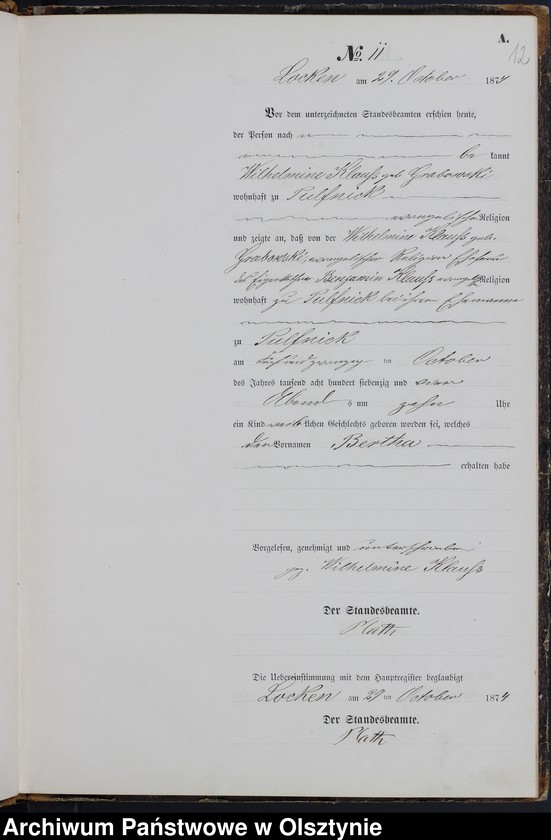 A.
12
No. 11
Locken am 29. October 1874
Vor dem unterzeichneten Standesbeamten erschien heute,
der Person nach
be kannt
Wilhelmine Klauß geb. Grabowski
wohnhaft zu Pulfnick
evangelischer Religion
und zeigte an, daß von der Wilhelmine Klauß geb.
Grabowski evangelischer Religion Ehefrau
des Benjamin Klauß Religion
wohnhaft zu Pulfnick bei ihrem Ehemanne
zu Pulfnick
am October
des Jahres tausend acht hundert siebenzig und vier
Abend s um zehn Uhr
ein Kind weiblichen Geschlechts geboren worden sei, welches
den Vornamen Bertha
erhalten habe
Vorgelesen, genehmigt und unterschrieben
gez. Wilhelmine Klauß
Der Standesbeamte.
Plath
Die Uebereinstimmung mit dem Hauptregister beglaubigt
Locken am 29 ten October 1874
Der Standesbeamte.
Plath
Archiwum Państwowe w Olsztynie